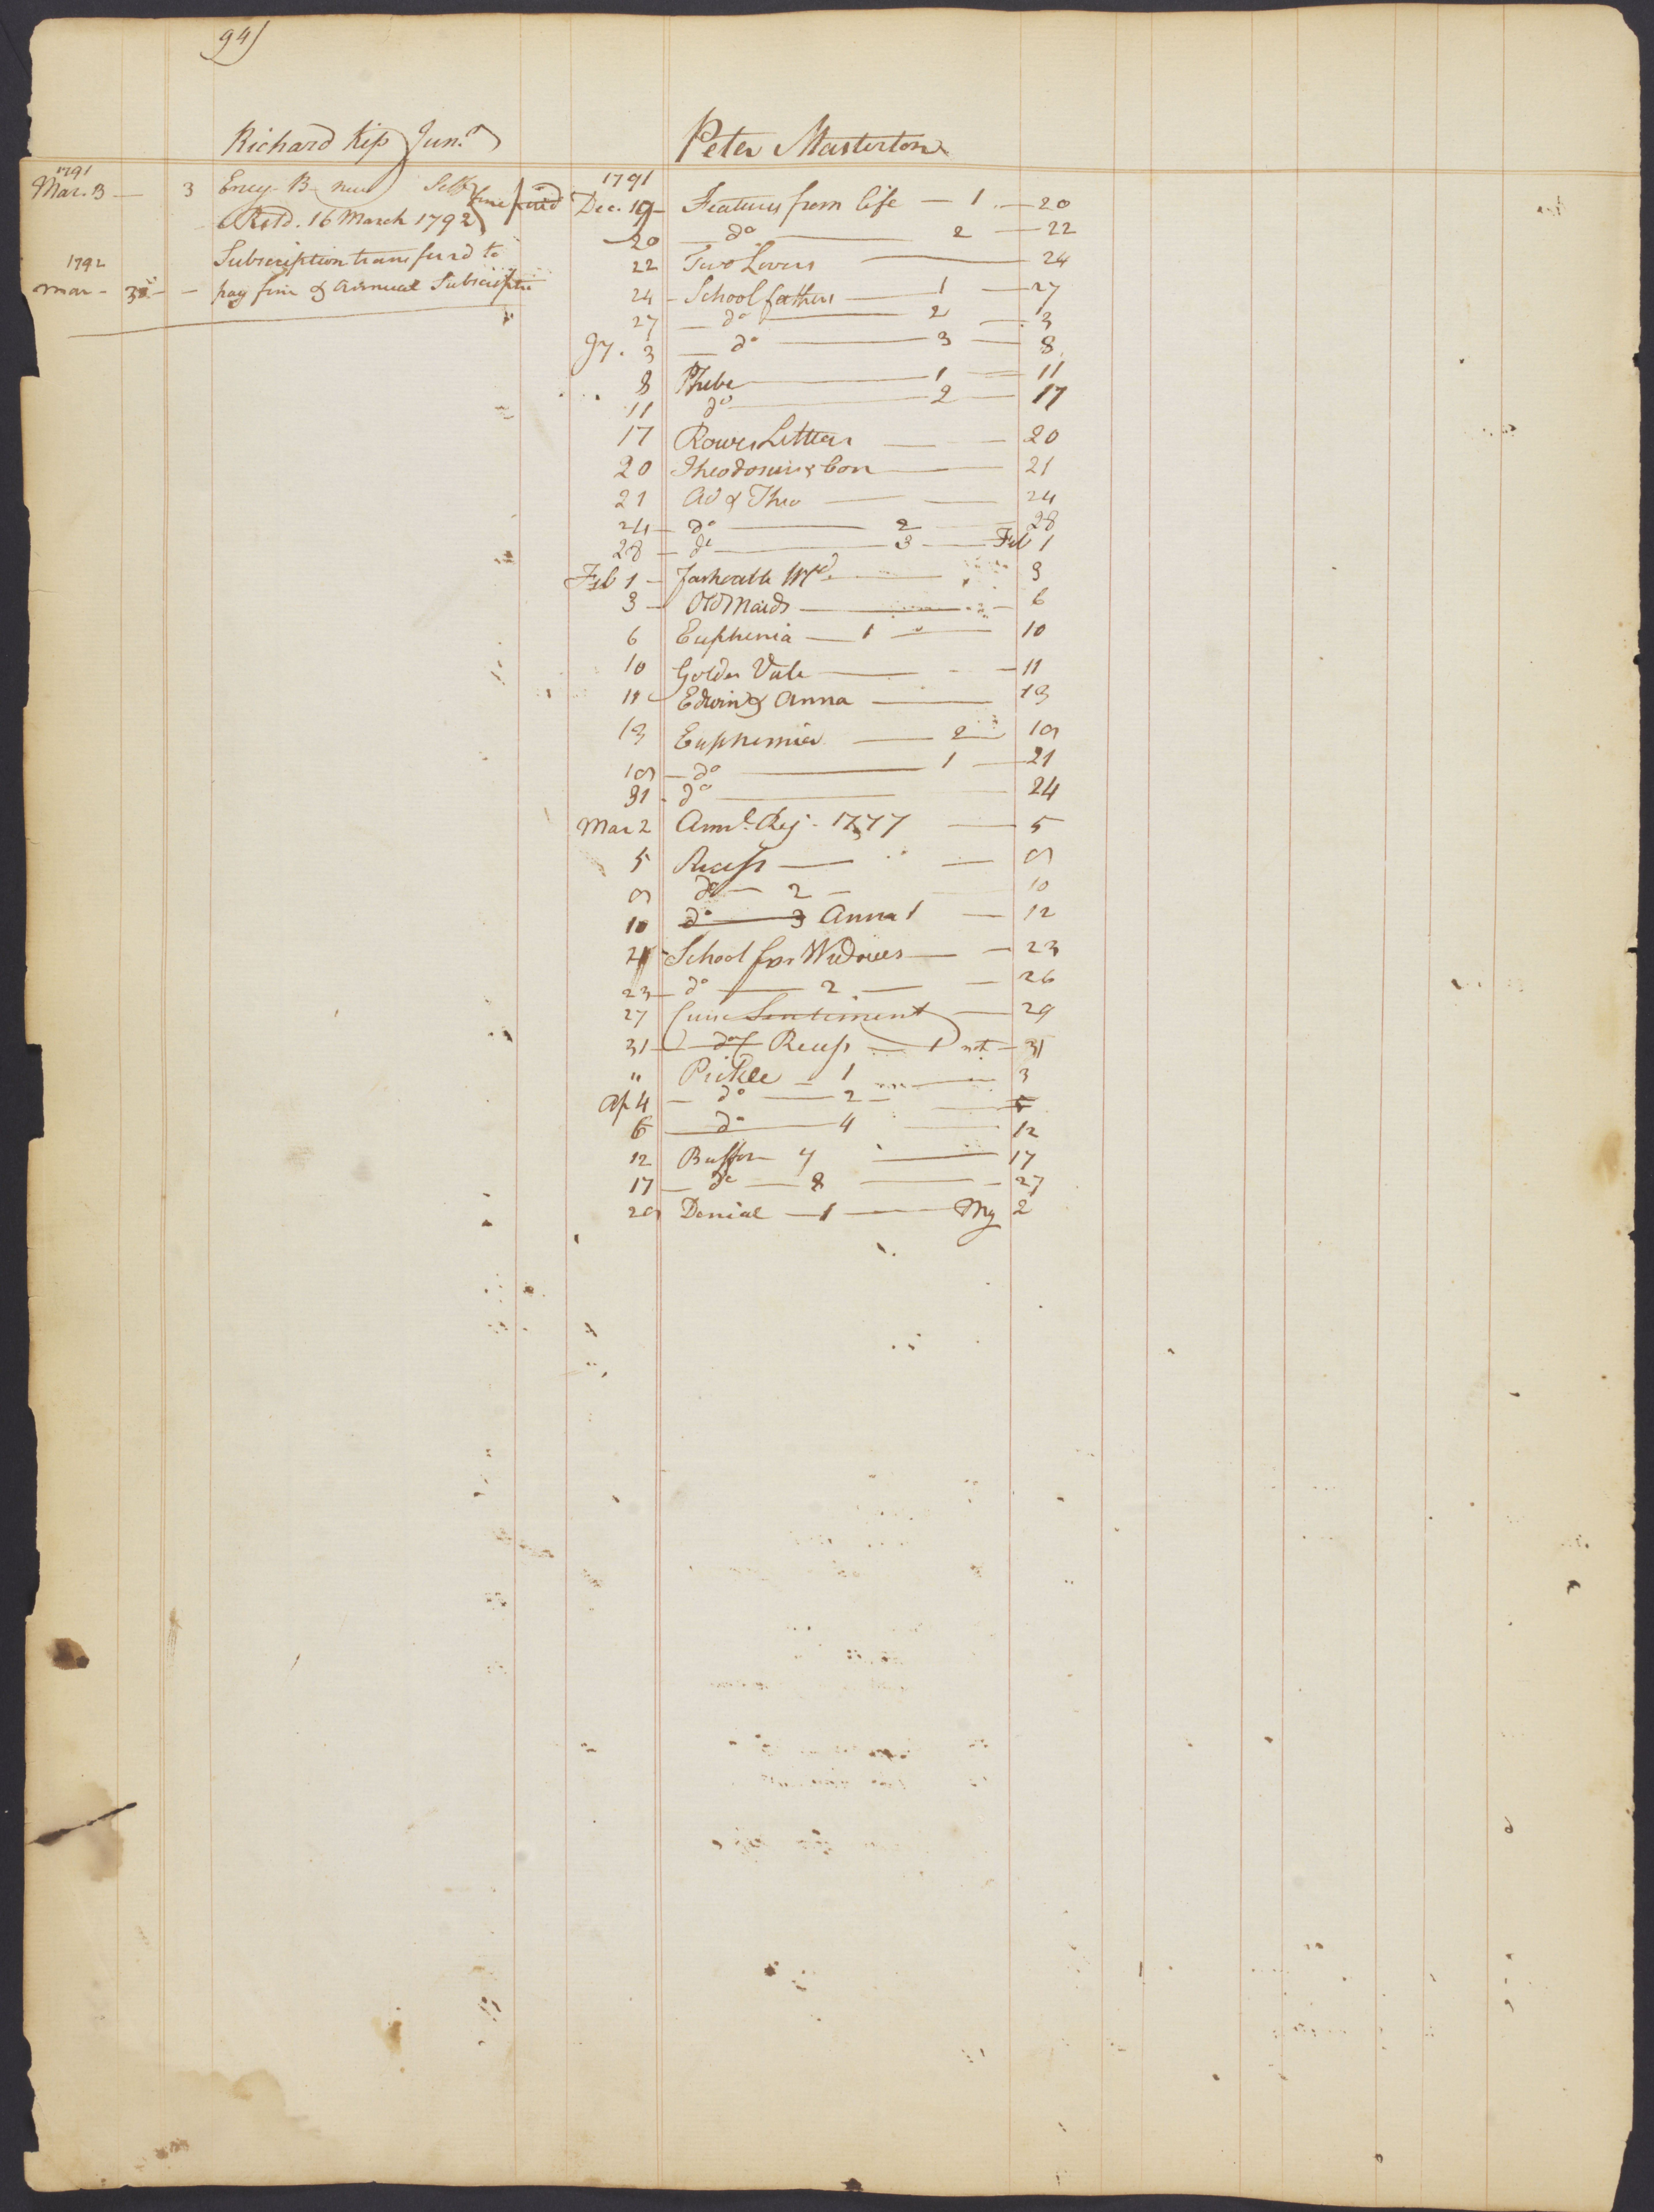 94)
Richard Kip Jun.r
1791
Mar. 3 — 3 Ency. B. new Self fine paid
Retd. 16 March 1792
Subscription transferd to
1792
Mar - - pay fine & Annual Subscriptn
Peter Masterton
1791
Dec. 19 — Features from life — 1 — 20
20 — do — 2 — 22
22 Two Lovers — 24
24 — School fathers — 1 — 27
27 — do — 2 — 3
Jy. 3 — do — 3 — 8
8 Phebe — 1 — 11
11 do — 2 — 17
17 Rowes Letters — 20
20 Theodosius & Con — 21
21 Ad & Theo — 24
24 — do — 2 — 28
28 — do — 3 — Feb 1
Feb 1 — 3
3 — Old Maids — 6
6 Euphemia — 1 — 10
10 Golden Vale — 11
11 — Edwin & Anna — 13
13 Euphemia — 2 — 19
19 — do — 1 — 21
21 - do — 24
Mar 2 Annl. Reg. 1777 — 5
5 Recess — 9
9 do — 2 — 10
10 do — 3 Anna 1 — 12
21 School for Widows — 23
23 — do — 2 — 26
27 Sentiment — 29
31 — do Recess — 1 nt — 31
" Pickle — 1 — 3
Ap 4 — do — 2 —
6 — do — 4 — 12
12 Buffon 7 — 17
17 — do — 8 — 27
29 Denial — 1 — My 2